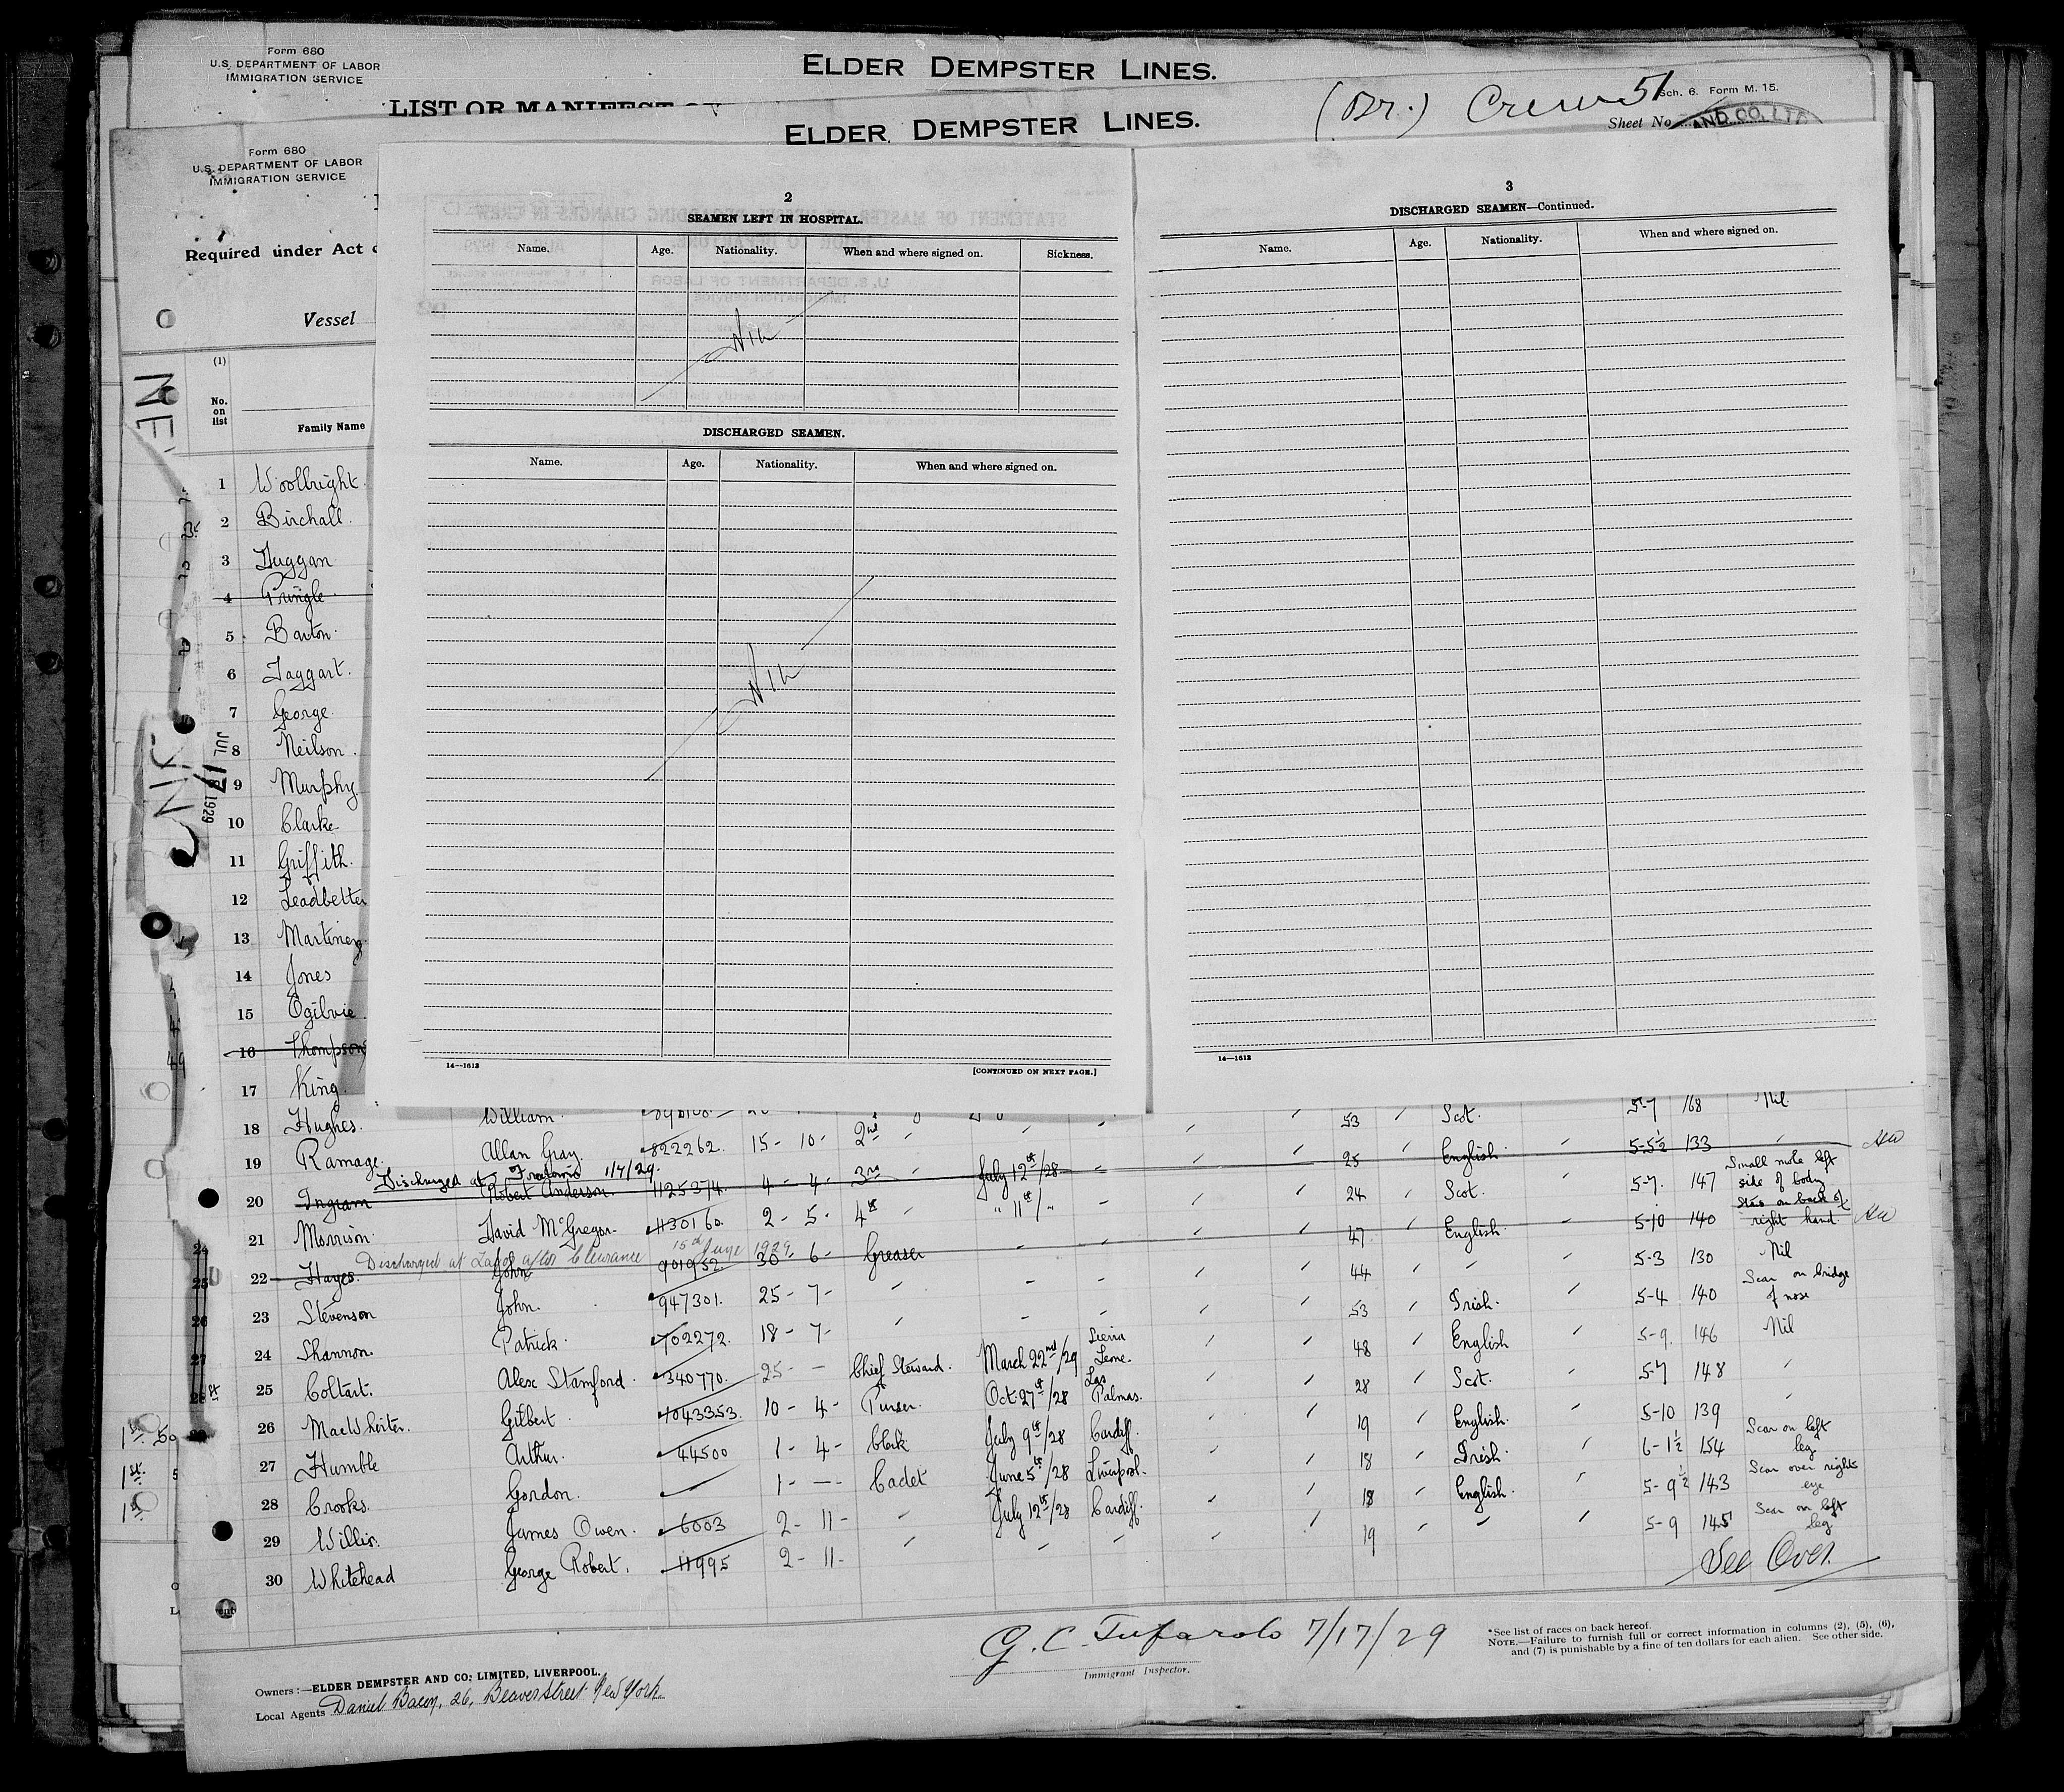 Form 680
U.S. DEPARTMENT OF LABOR
IMMIGRATION SERVICE
ELDER DEMPSTER LINES.
LIST OR MANIFEST
(Br.) Crew 51
Sch. 6. Form M. 15.
Sheet No.
AND CO. LTD
ELDER DEMPSTER LINES.
Form 680
U.S. DEPARTMENT OF LABOR
IMMIGRATION SERVICE
Required under Act
Vessel
(1)
No. on list
Family Name
JUL 17 1929
1 Woolbright.
2 Birchall.
3 Duggan
4 Pringle
5 Barton.
6 Taggart.
7 George.
8 Neilson.
9 Murphy.
10 Clarke
11 Griffith.
12 Leadbetter
13 Martinez.
14 Jones
15 Ogilvie.
16 Thompson
17 King.
2
SEAMEN LEFT IN HOSPITAL.
Name. Age. Nationality. When and where signed on. Sickness.
Nil
DISCHARGED SEAMEN.
Name. Age. Nationality. When and where signed on.
Nil
14—1613
[CONTINUED ON NEXT PAGE.]
3
DISCHARGED SEAMEN—Continued.
Name. Age. Nationality. When and where signed on.
14—1613
18 Hughes. William. 53 Scot. 5-7 168 Nil.
19 Ramage. Allan Gray. 822262. 15 - 10 - 2nd 25 English. 5-5½ 133
Discharged at 1/7/29.
20 Ingram Robert Anderson. 1125374. 4 - 4 - 3rd July 12th/28 24 Scot. 5-7. 147 Small mole left side of body
21 Morrison. David McGregor 1130160. 2 - 5 - 4th " 11th/ - 47 English. 5-10 140 Scar on back of right hand.
Discharged at Lagos after Clearance 15th June 1929
22 Hayes. John 901952. 30 - 6 - Greaser 44 5-3 130 Nil
23 Stevenson John. 947301. 25 - 7 - 53 Irish. 5-4 140 Scar on bridge of nose
24 Shannon. Patrick. 702272. 18 - 7 - 48 English 5-9. 146 Nil
25 Coltart. Alex Stamford. 340770. 25 - — Chief Steward. March 22nd/29 Sierra Leone. 28 Scot. 5-7 148
26 MacWhirter. Gilbert 1043353. 10 - 4 - Purser. Oct. 27th/28 Las Palmas. 19 English. 5-10 139
27 Humble Arthur. 44500 1 - 4 - Clerk July 9th/28 Cardiff. 18 Irish. 6-1½ 154 Scar on left leg
28 Crooks. Gordon. 1 - — - Cadet June 5th/28 Liverpool. 18 English. 5-9½ 143 Scar over right eye
29 Willis. James Owen. 6003 2 - 11 - July 12th/28 Cardiff. 19 5-9 145 Scar on left leg
30 Whitehead George Robert. 11995 2 - 11 -
See Over.
G. C. Tufarolo 7/17/29
Immigrant Inspector.
*See list of races on back hereof.
NOTE.—Failure to furnish full or correct information in columns (2), (5), (6), and (7) is punishable by a fine of ten dollars for each alien. See other side.
Owners:—ELDER DEMPSTER AND CO: LIMITED, LIVERPOOL.
Local Agents Daniel Bacon, 26, Beaver Street New York